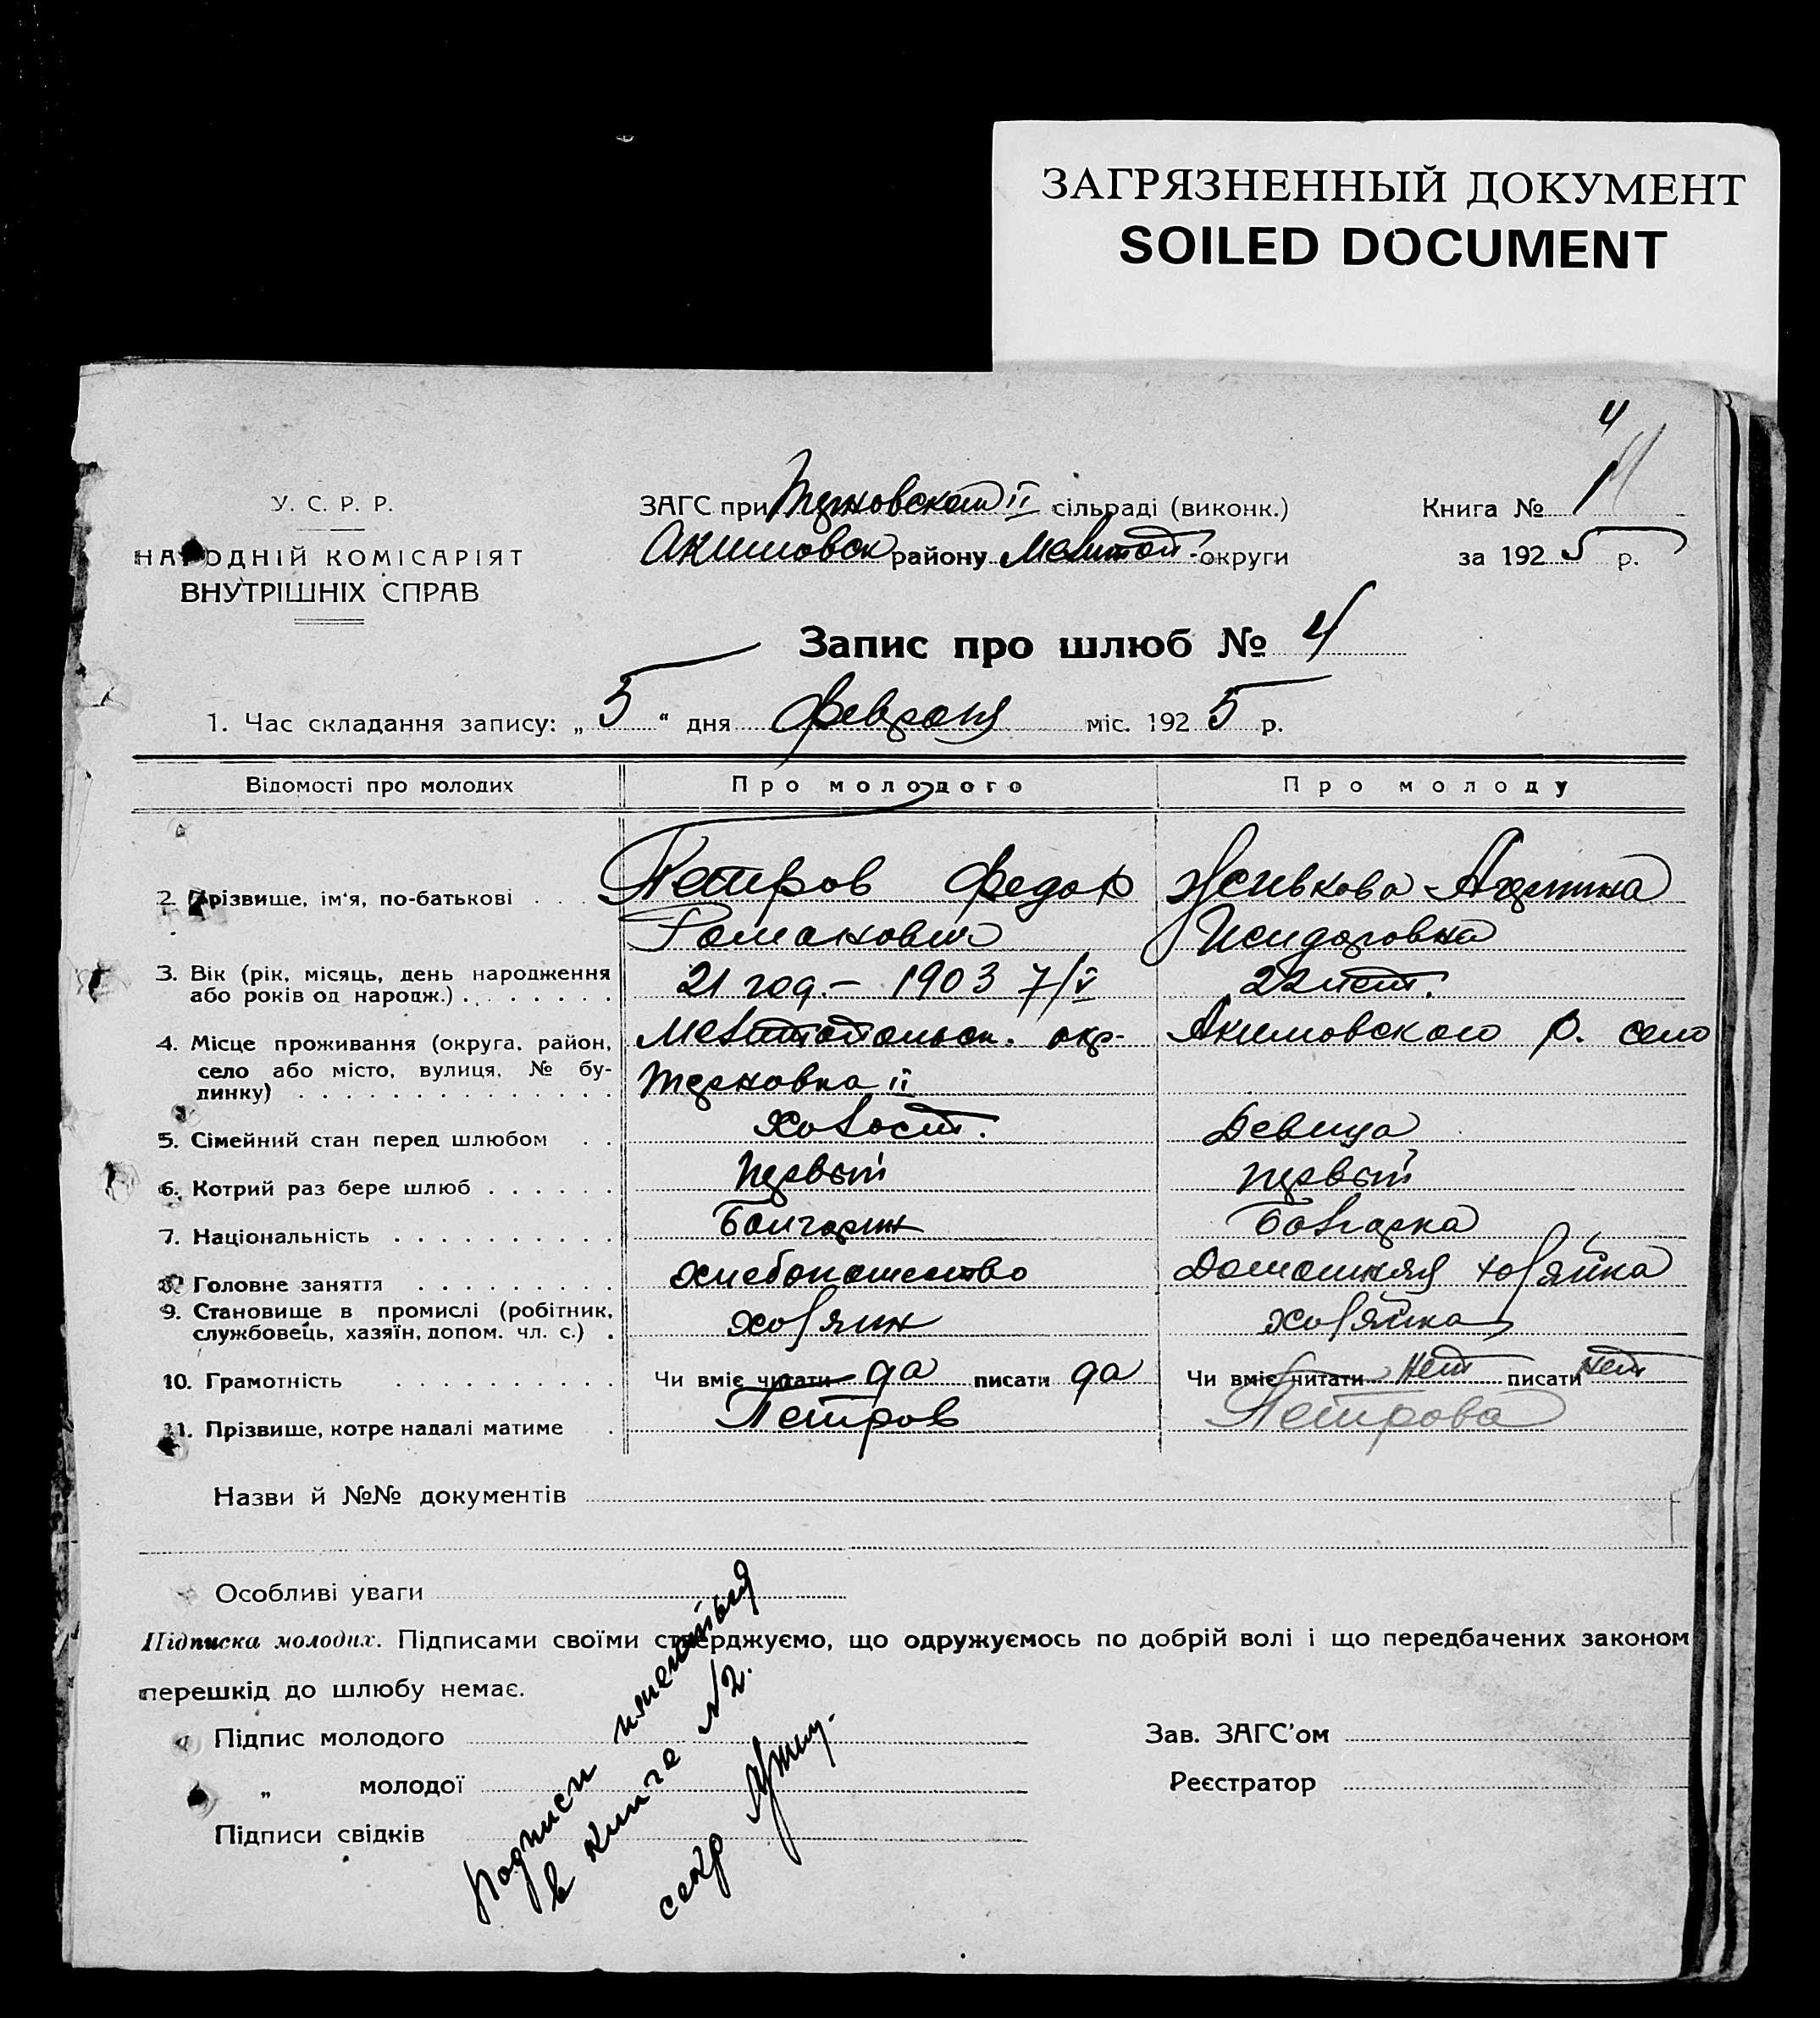 ЗАГРЯЗНЕННЫЙ ДОКУМЕНТ
SOILED DOCUMENT
4
У. С. Р. Р.
НАРОДНІЙ КОМІСАРІЯТ
ВНУТРІШНІХ СПРАВ
ЗАГС при Терновском II сільраді (виконк.)
Акимовск району Мелитоп. округи
Книга № 1
за 1925 р.
Запис про шлюб № 4
1. Час складання запису: „ 5 “ дня февраля міс. 1925 р.
Відомості про молодих Про молодого Про молоду
2. Прізвище, ім'я, по-батькові . . . Петров Федор Женькова
Романович Исидоровна
3. Вік (рік, місяць, день народження 21 год. – 1903 7/V 22 лет.
або років од народж.) . . . . . . .
4. Місце проживання (округа, район, Мелитопольск. окр. Акимовского р. село
село або місто, вулиця, № бу- Терновка II
динку) . . . . . . . . . . . . . .
5. Сімейний стан перед шлюбом . . Холост. Девица
6. Котрий раз бере шлюб . . . . . . первый первый
7. Національність . . . . . . . . . . Болгарин Болгарка
8. Головне заняття . . . . . . . . . хлебопашество Домашняя хозяйка
9. Становище в промислі (робітник, хозяин хозяйка
службовець, хазяїн, допом. чл. с.) .
10. Грамотність . . . . . . . . . . Чи вміє читати да писати да Чи вміє читати нет писати нет
11. Прізвище, котре надалі матиме . Петров Петрова
Назви й №№ документів
Особливі уваги
Підписка молодих. Підписами своїми стверджуємо, що одружуємось по добрій волі і що передбачених законом
перешкід до шлюбу немає.
Підпис молодого
„ молодої
Підписи свідків
Зав. ЗАГС'ом
Реєстратор
подписи имеються
в книге №2.
секр